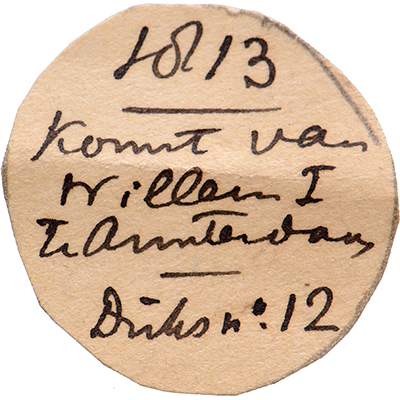 1813
Komst van
Willem I
te Amsterdam
Dirks no. 12